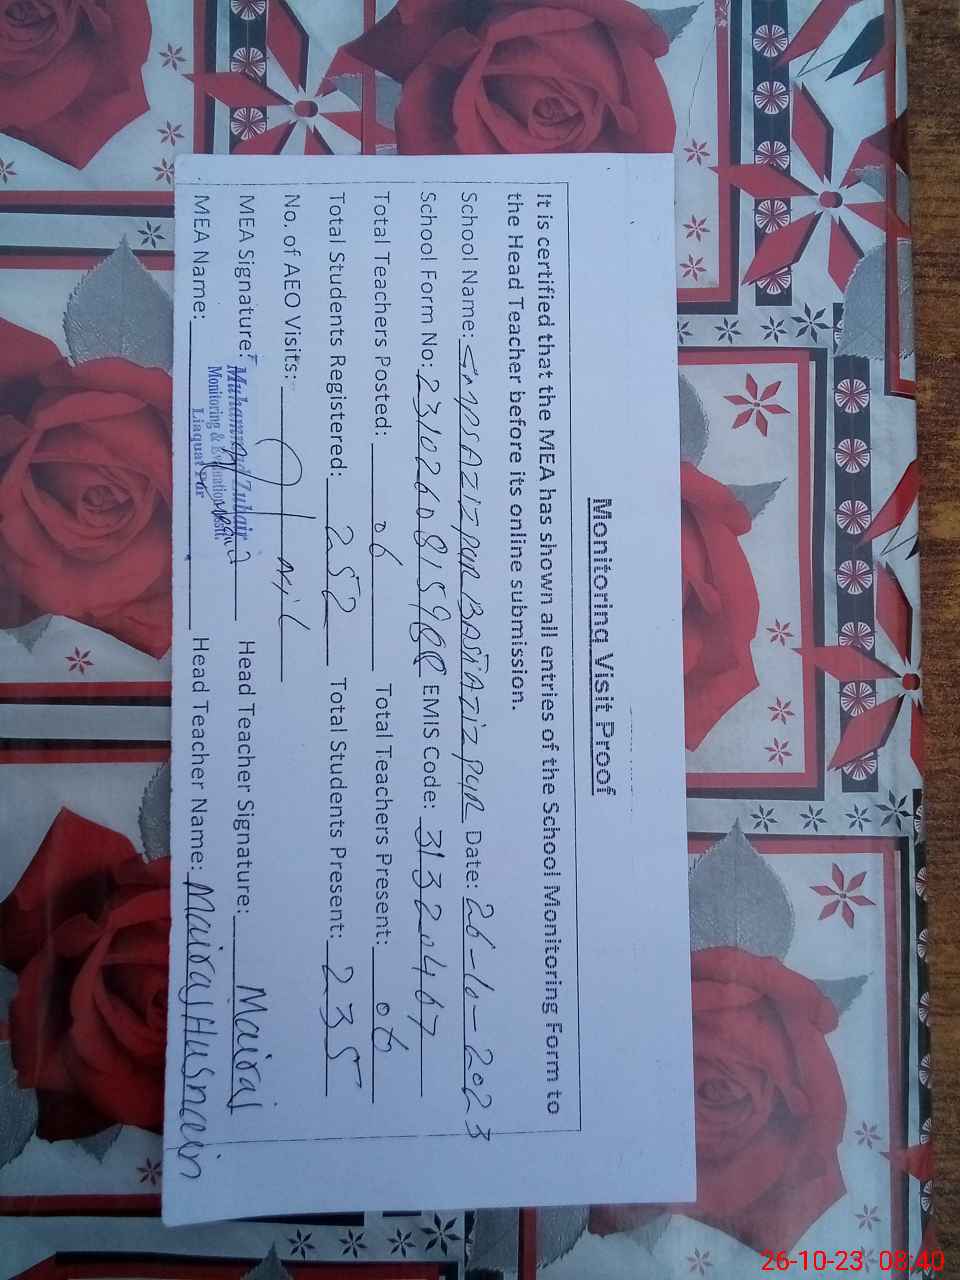 Monitoring Visit Proof
It is certified that the MEA has shown all entries of the School Monitoring Form to
the Head Teacher before its online submission.
School Name: GMPS AZIZ PUR BASTI AZIZ PUR Date: 26-10-2023
School Form No: EMIS Code: 31320467
Total Teachers Posted: 06 Total Teachers Present: 06
Total Students Registered: 252 Total Students Present: 235
No. of AEO Visits: Nil
MEA Signature: Head Teacher Signature: Mairaj
Muhammad Zubair
Monitoring & Evaluation
Liaquat Pur
MEA Name: Head Teacher Name: Mairaj Husnain
26-10-23 08:40